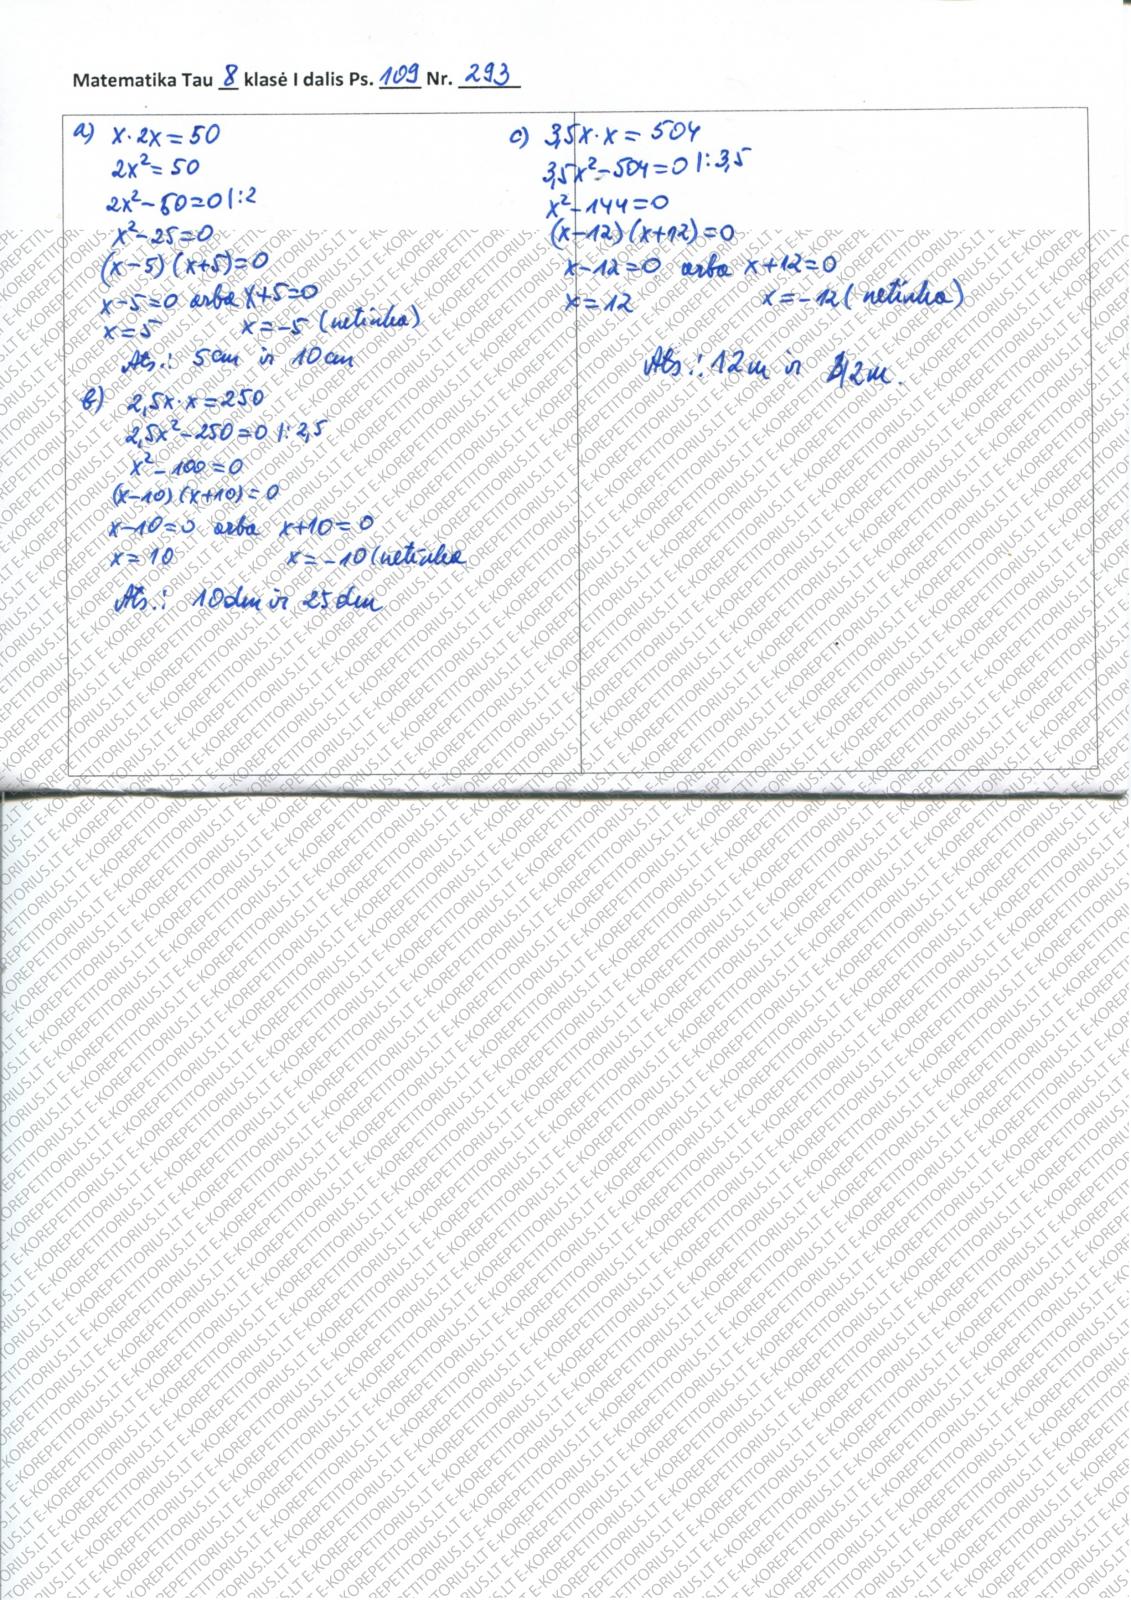 Matematika Tau 8 klasė I dalis Ps. 109 Nr. 293
a) x·2x=50
2x²=50
2x²-50=0 |:2
x²-25=0
(x-5)(x+5)=0
x-5=0 arba x+5=0
x=5 x=-5 (netinka)
Ats.: 5cm ir 10cm
b) 2,5x·x=250
2,5x²-250=0 |:2,5
x²-100=0
(x-10)(x+10)=0
x-10=0 arba x+10=0
x=10 x=-10 (netinka
Ats.: 10dm ir 25dm
c) 3,5x·x=504
3,5x²-504=0 |:3,5
x²-144=0
(x-12)(x+12)=0
x-12=0 arba x+12=0
x=12 x=-12 (netinka)
Ats.: 12m ir 42m.
E-KOREPETITORIUS.LT